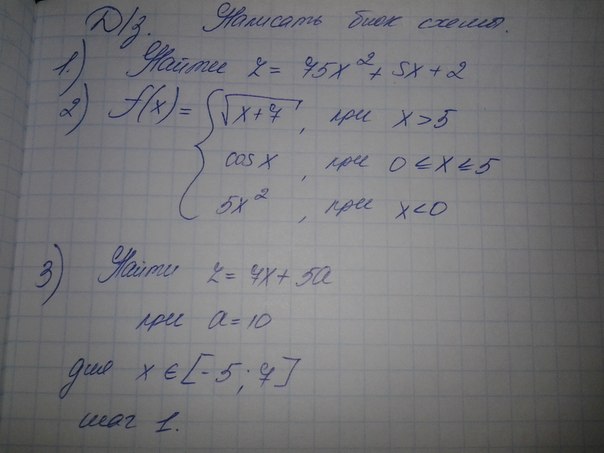 Д/з. Написать блок схемы.
1.) Найти z = 75x² + 5x + 2
2) f(x) = { √x+7, при x > 5
cos x, при 0 ≤ x ≤ 5
5x², при x < 0
3) Найти z = 7x + 5a
при a = 10
для x ∈ [-5; 7]
шаг 1.